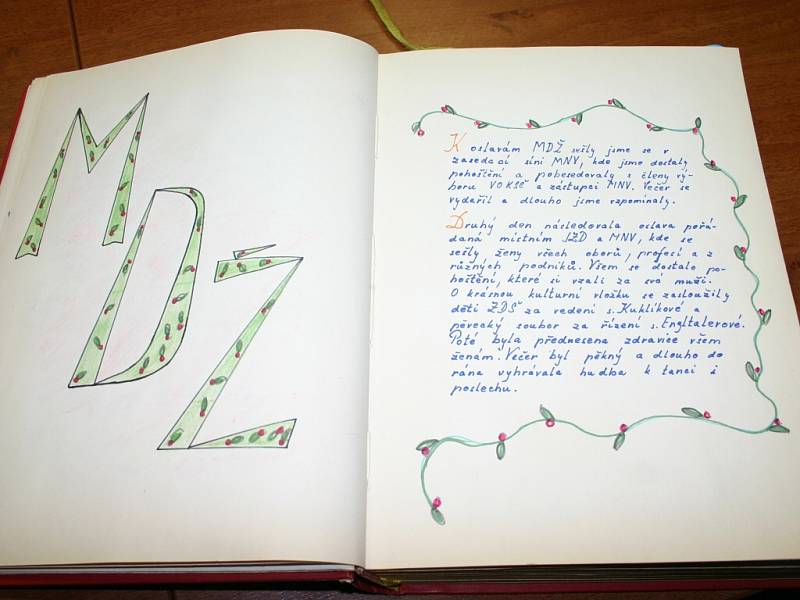 MDŽ
K oslavám MDŽ sešly jsme se v
zasedací síni MNV, kde jsme dostaly
pohoštění a pobesedovaly s členy vý-
boru VOKSČ a zástupci MNV. Večer se
vydařil a dlouho jsme vzpomínaly.
Druhý den následovala oslava pořá-
daná místním JZD a MNV, kde se
sešly ženy všech oborů, profesí a z
různých podniků. Všem se dostalo po-
hoštění, které si vzali za své muži.
O krásnou kulturní vložku se zasloužily
děti ZDŠ za vedení s. Kuklíkové a
pěvecký soubor za řízení s. Engltalerové.
Poté byla přednesena zdravice všem
ženám. Večer byl pěkný a dlouho do
rána vyhrávala hudba k tanci i
poslechu.